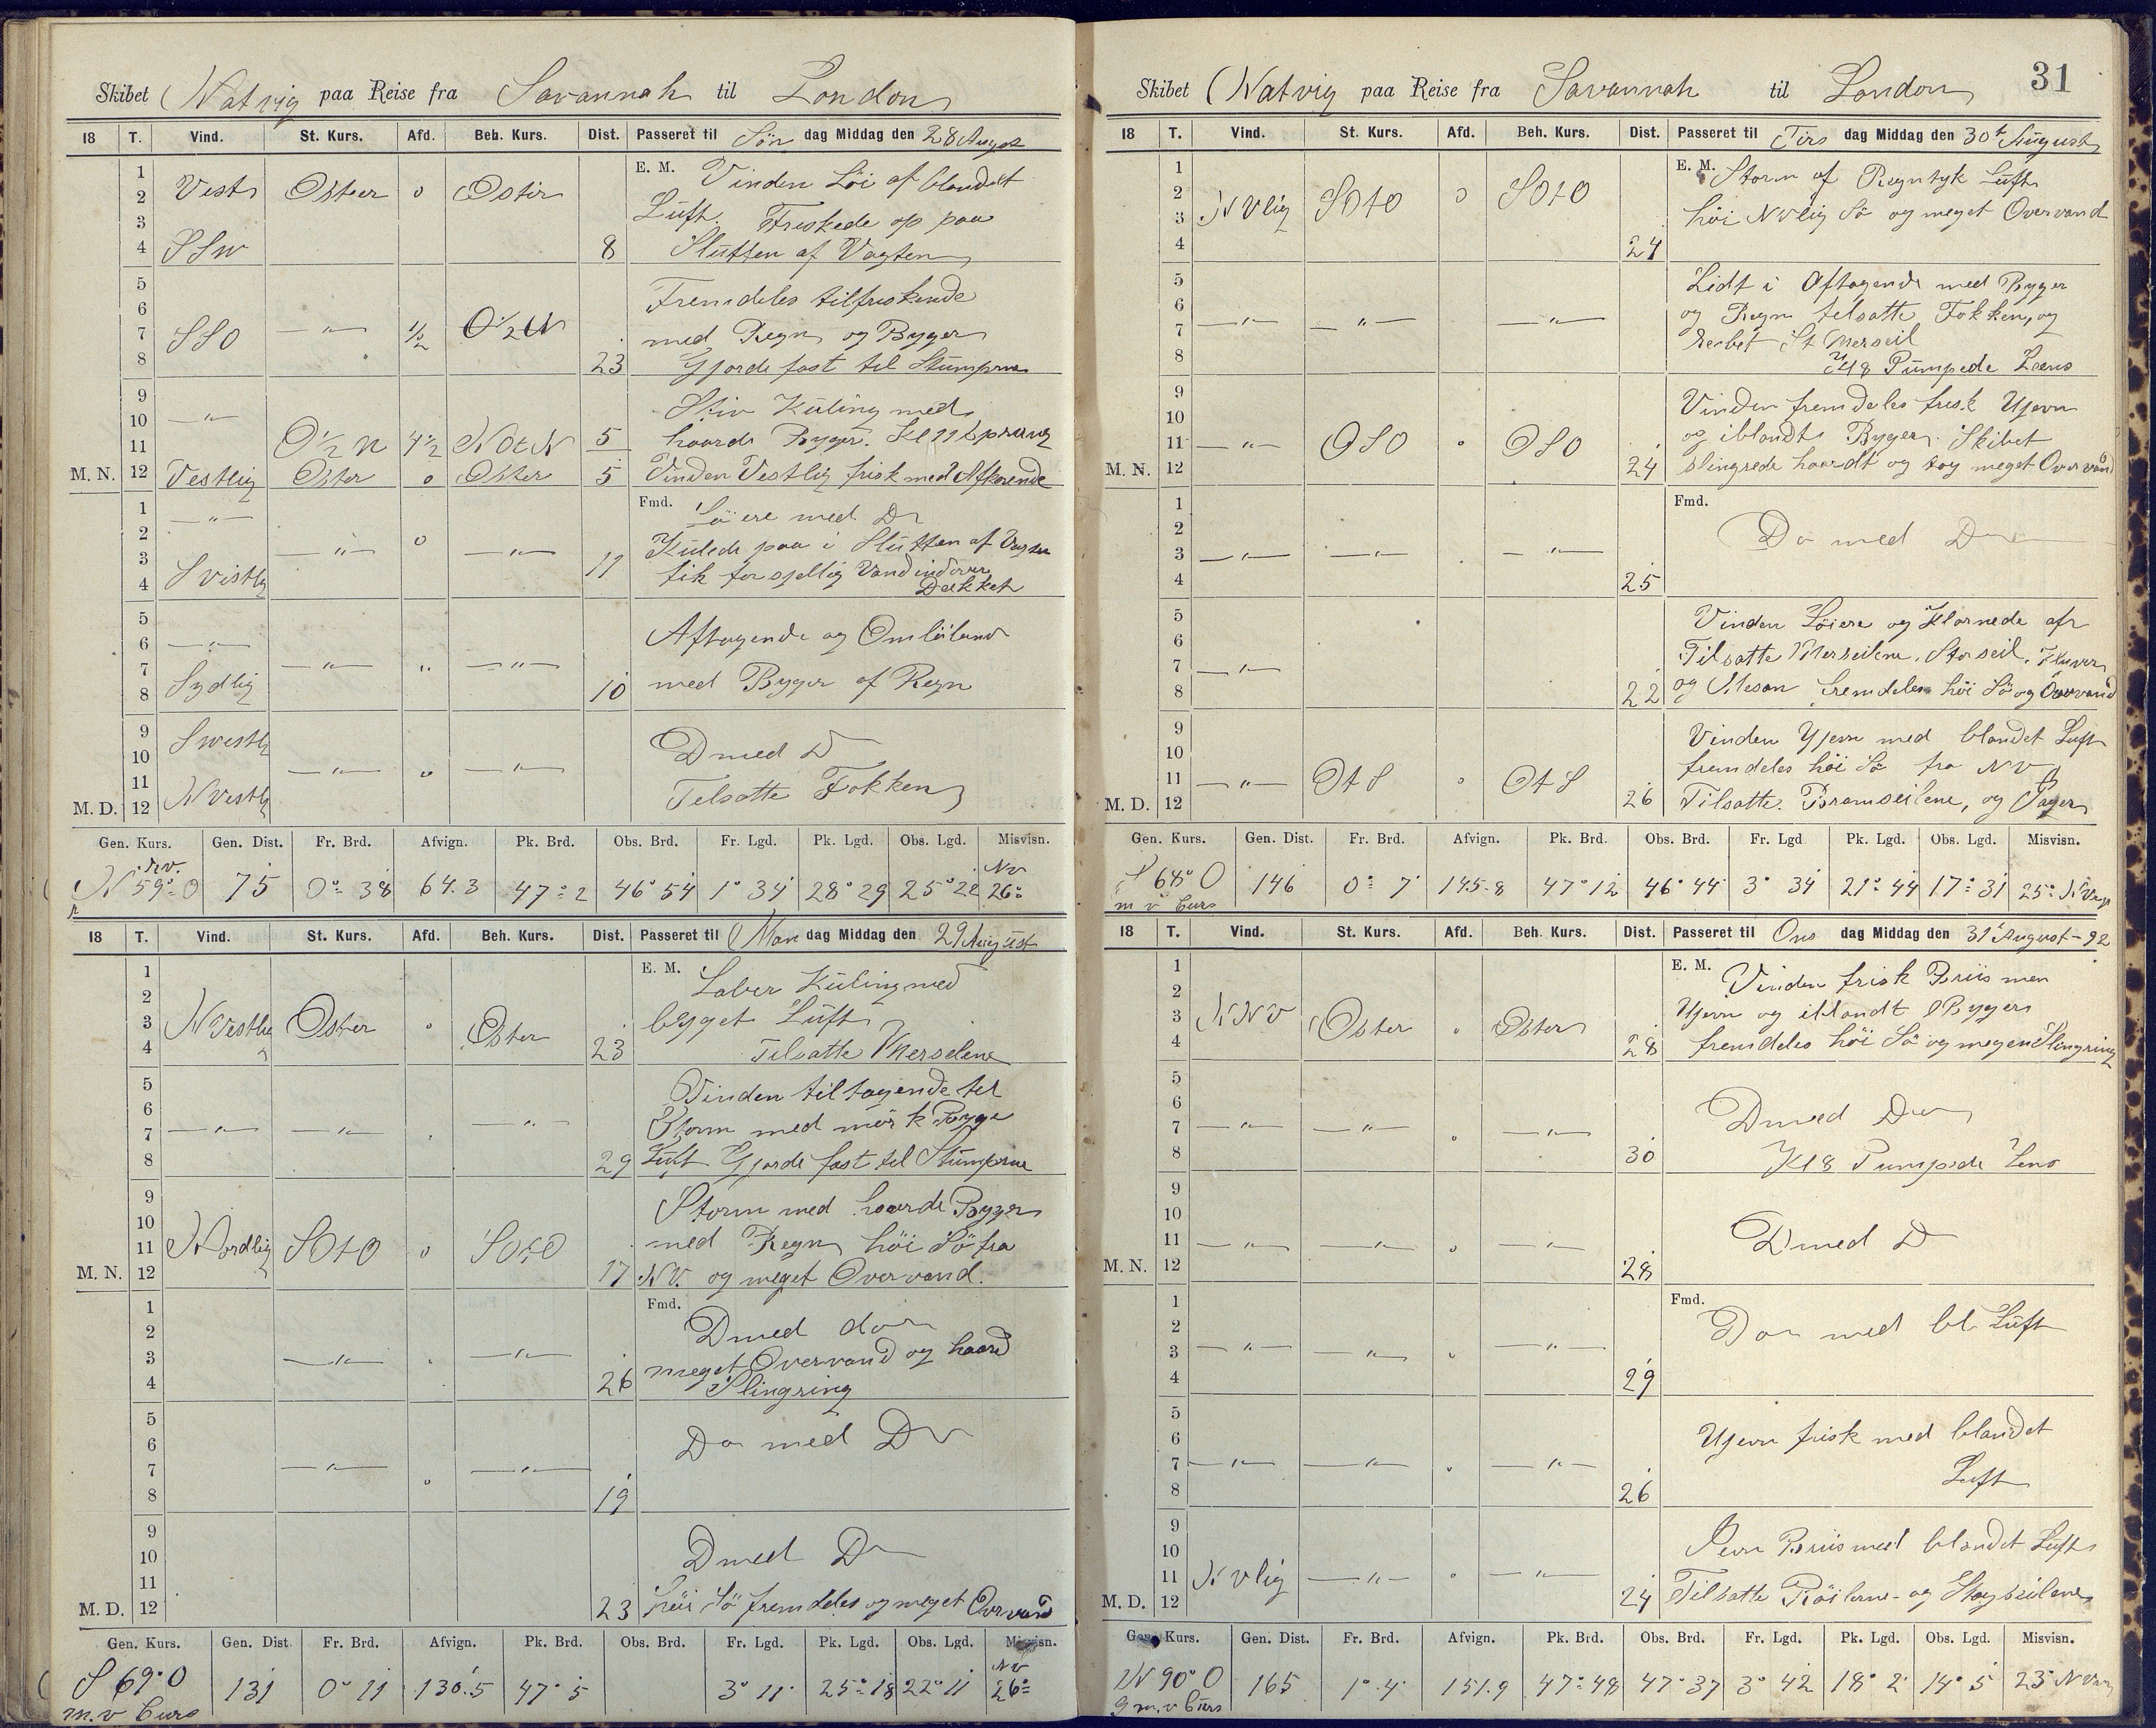 Skibet Natvig paa Reise fra Savannah til London
18 T. Vind. St. Kurs. Afd. Beh. Kurs. Dist. Passeret til Søn dag Middag den 28 August
1 E. M. Vinden Löi af blandet
2 Vest Oster o Oster Luft. Friskede op paa
3
4 SSW 8 Slutten af Vagten
5 Fremdeles tilfriskende
6
7 SSO —"— 1/2 O 1/2 N med Regn og Byger
8 23 Gjorde fast til Stumperne
9 Stiv Kuling med
10 —"—
11 O 1/2 N 4 1/2 NOtN 5 haarde Byger. Kl 11 sprang
M. N. 12 Vestlig Oster o Oster 5 Vinden Vestlig frisk med Aftagende
1 —"— Fmd. Löiere med Do
2 Kulede paa i Slutten af Vagten
3 —"— o —"— 11 fik forsjellig Vand indover
4 S vestlig Dækket
5 Aftagende og Omlöbende
6 —"—
7 Sydlig —"— " —"—
8 10 med Byger af Regn
9 S westlig
10 D med D
11 —"— o —"— Tilsatte Fokken
M. D. 12 N vestlig
Gen. Kurs. Gen. Dist. Fr. Brd. Afvign. Pk. Brd. Obs. Brd. Fr. Lgd. Pk. Lgd. Obs. Lgd. Misvisn.
N 59° O 75 0° 38 64.3 47° 2 46° 54 1° 34 28° 29 25° 22 NV 26°
18 T. Vind. St. Kurs. Afd. Beh. Kurs. Dist. Passeret til Man dag Middag den 29 August
1 E. M. Laber Kuling med
2
3 N Vestlig Oster o Oster bygget Luft
4 23 Tilsatte Merselene
5 Vinden tiltagende til
6 Storm med mörk Byge
7 —"— —"— —"—
8 29 Luft Gjorde fast til Stumperne
9 Storm med haarde Byger
10
11 Nordlig SOtO o SOtO med Regn höi Sö fra
M. N. 12 17 NV. og meget Overvand.
1 Fmd. D med do
2
3 —"— —"— meget Overvand og haard
4 26 Slingring
5
6 Do med Do
7 —"— o —"—
8 19
9
10 D med D
11
M. D. 12 23 höi Sö fremdeles og meget Overvand
Gen. Kurs. Gen. Dist. Fr. Brd. Afvign. Pk. Brd. Obs. Brd. Fr. Lgd. Pk. Lgd. Obs. Lgd. Misvisn.
S 69° O 131 0° 11 130.5 47° 5 3° 11 25° 18 22° 11 NV 26°
m. v Curs
31
Skibet Natvig paa Reise fra Savannah til London
18 T. Vind. St. Kurs. Afd. Beh. Kurs. Dist. Passeret til Tirs dag Middag den 30t August
1 E. M. Storm af Regntyk Luft
2 N Vlig SOtO o SOtO höi N Vlig Sö og meget Overvand
3
4 24
5 Lidt i Aftagende med Byger
6 og Regn tilsatte Fokken, og
7 —"— —"— —"— Rebet St Merseil
8 Kl 8 Pumpede Læns
9 Vinden fremdeles frisk Ujevn
10 og iblandt Byger. Skibet
11 —"— OSO o OSO
M. N. 12 24 slingrede haardt og tog meget Overvand
1 Fmd.
2 Do med Do
3 —"— —"— —"—
4 25
5 Vinden Löiere og Klarnede af
6 Tilsatte Merseilene, Storseil, Kluver
7 —"—
8 22 og Mesan fremdeles höi Sö og Overvand
9 Vinden Ujevn med blandet Luft
10 fremdeles höi Sö fra NV
11 —"— OtS o OtS
M. D. 12 26 Tilsatte Bramseilene, og
Gen. Kurs. Gen. Dist. Fr. Brd. Afvign. Pk. Brd. Obs. Brd. Fr. Lgd Pk. Lgd. Obs. Lgd. Misvisn.
S 68° O 146 0° 7 145.8 47° 12 46° 44 3° 34 21° 44 17° 31 25° N Vesp
m v Curs
18 T. Vind. St. Kurs. Afd. Beh. Kurs. Dist. Passeret til Ons dag Middag den 31 August - 92
1 E. M. Vinden frisk Briis men
2 NNV Oster o Oster Ujevn og iblandt Byger
3
4 28 fremdeles höi Sö og megen Slingring
5
6 D med Do
7 —"— —"— o —"—
8 30 Kl 8 Pumpede Lens
9
10 D med D
11 —"— —"— o —"—
M. N. 12 28
1 Fmd.
2 Do med bl. Luft
3 —"— —"— o —"—
4 29
5
6 Ujevn frisk med blandet
7 —"— —"— o —"—
8 26 Luft
9 Jevn Briis med blandet Luft
10
11 N Vlig —"— o —"—
M. D. 12 24 Tilsatte Röilerne og Stagseilene
Gen. Kurs. Gen. Dist. Fr. Brd. Afvign. Pk. Brd. Obs. Brd. Fr. Lgd. Pk. Lgd. Obs. Lgd. Misvisn.
N 90° O 165 1° 4 151.9 47° 48 47° 37 3° 42 18° 2 14° 5 23° N
m. v Curs